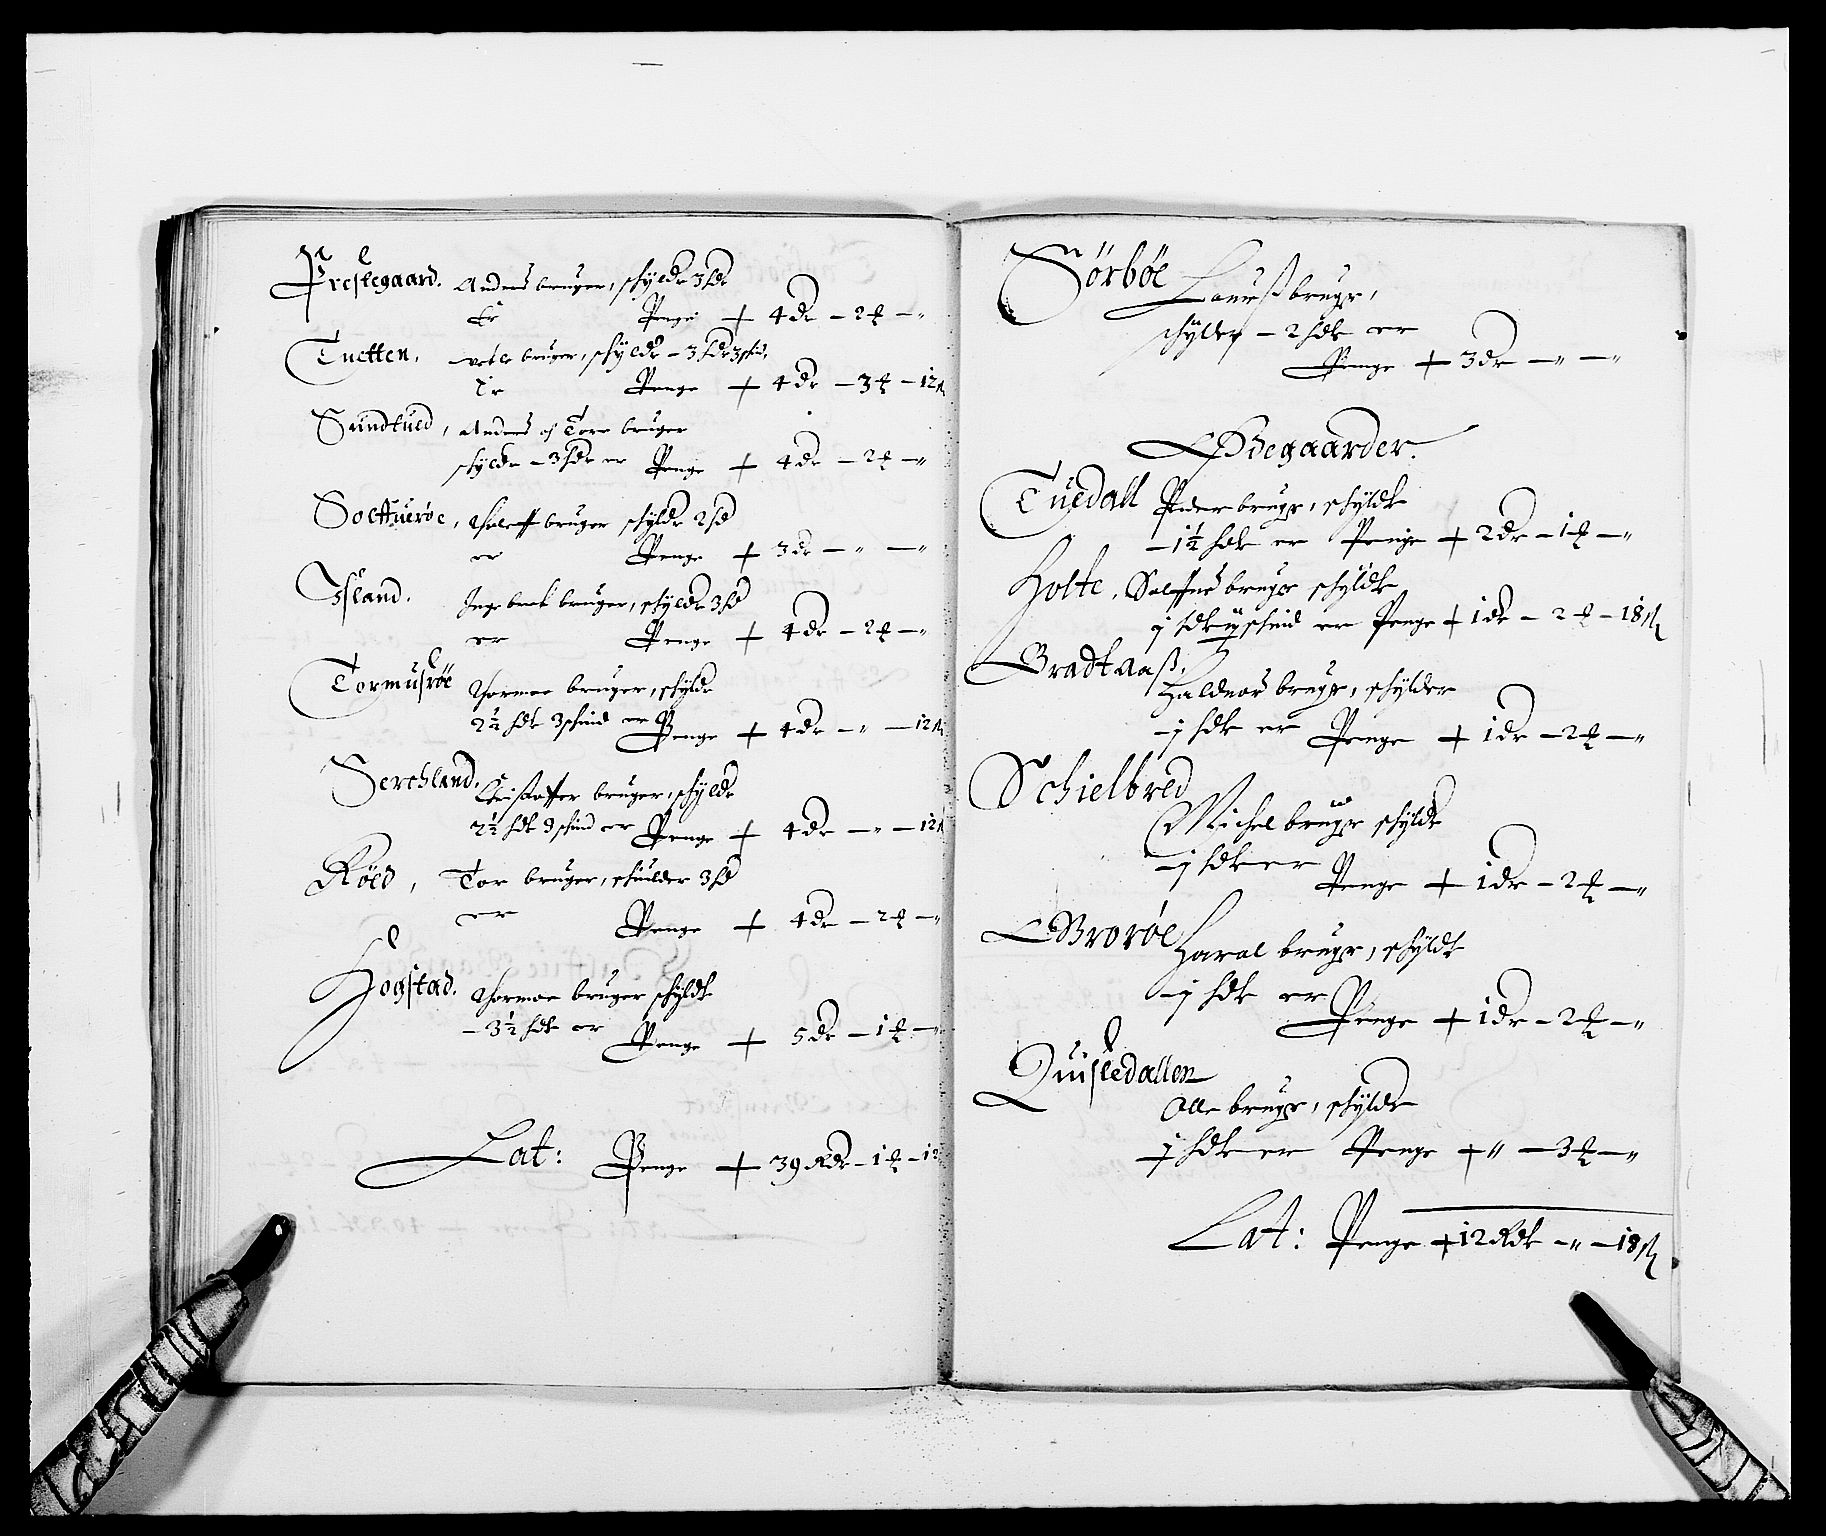 Prestegaard. Anders bruger, schylder 3 hd
Er Penge + 4 dr – 2 ₰ – "
Tuetten, bruger, schylder – 3 hdr 3 schind,
Er Penge + 4 dr – 3 ₰ – 12 ß
Sundtued, Anders og Tore bruger
schylder – 3 hdr er Penge + 4 dr – 2 ₰ – "
Solffuerøe, bruger schylder 2 hd
er Penge + 3 dr – " – "
Jsland. Ingebret bruger, schylder 3 hd
er Penge + 4 dr – 2 ₰ – "
Tormusrøe Thormoe bruger, schylder
2½ hdr 3 schind er Penge + 4 dr – " – 12 ß
Serchland. Christoffer bruger, schylder
2½ hdr 3 schind er Penge + 4 dr – " – 12 ß
Røed, Tor bruger, schuilder 3 hd
er Penge + 4 dr – 2 ₰ – "
Hogstad. Thormoe bruger schylder
– 3½ hdr er Penge + 5 dr – 1 ₰ – "
Lat: Penge + 39 Rdr – 1 ₰ – 12
Sörböe Lauriß bruger,
schylder – 2 hdr er
Penge + 3 dr – " – "
Ødegaarder.
Tuedall Peder bruger, schylder
– 1½ hdr er Penge + 2 dr – 1 ₰ – "
Holte. bruger schylder
j hdr ij schind er Penge + 1 dr – 2 ₰ – 18 ß
Bradtaaß. Halduor bruger, schylder
– j hdr er Penge + 1 dr – 2 ₰ – "
Schielbred
Michel bruger schylder
– j hdr er Penge + 1 dr – 2 ₰ – "
Brorøe Haral bruger, schylder
– j hdr er
Penge + 1 dr – 2 ₰ – "
Quisledallen
Olle bruger, schylder
– j hdr er Penge + " – 3 ₰ – "
Lat: Penge + 12 Rdr – " – 18 ß